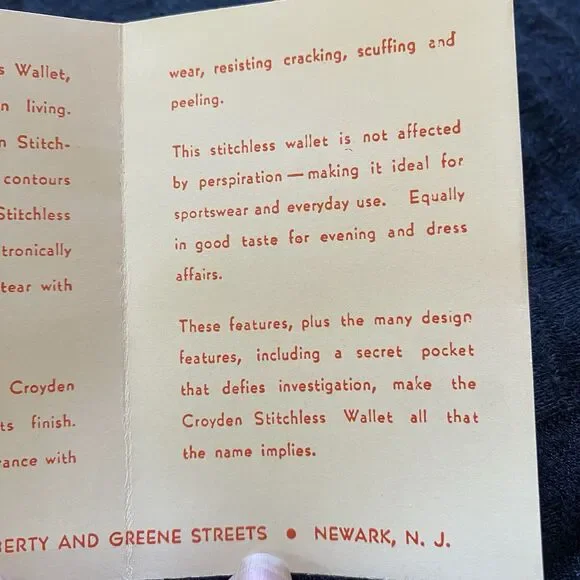 s Wallet,
n living.
n Stitch-
contours
Stitchless
tronically
tear with
Croyden
ts finish.
ance with
wear, resisting cracking, scuffing and
peeling.
This stitchless wallet is not affected
by perspiration — making it ideal for
sportswear and everyday use. Equally
in good taste for evening and dress
affairs.
These features, plus the many design
features, including a secret pocket
that defies investigation, make the
Croyden Stitchless Wallet all that
the name implies.
BERTY AND GREENE STREETS • NEWARK, N. J.